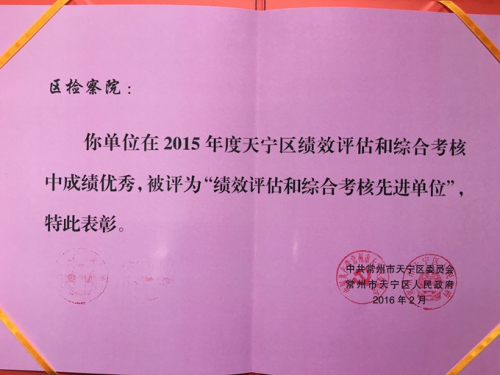 区检察院：
你单位在2015年度天宁区绩效评估和综合考核
中成绩优秀，被评为“绩效评估和综合考核先进单位”，
特此表彰。
中共常州市天宁区委员会
常州市天宁区人民政府
2016年2月